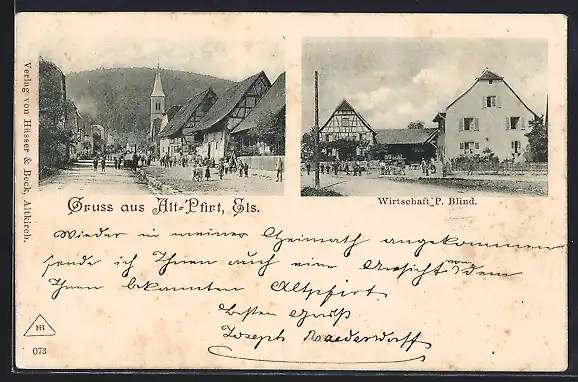 Verlag von Hüsser & Beck, Altkirch.
Gruss aus Alt-Pfirt, Els.
Wirtschaft P. Blind.
Wieder in meiner Heimath angekommen
sende ich Ihnen auch eine Ansicht von dem
Ihnen bekannten Altpfirt.
Besten Gruß
Joseph Raederstorff
HB
073